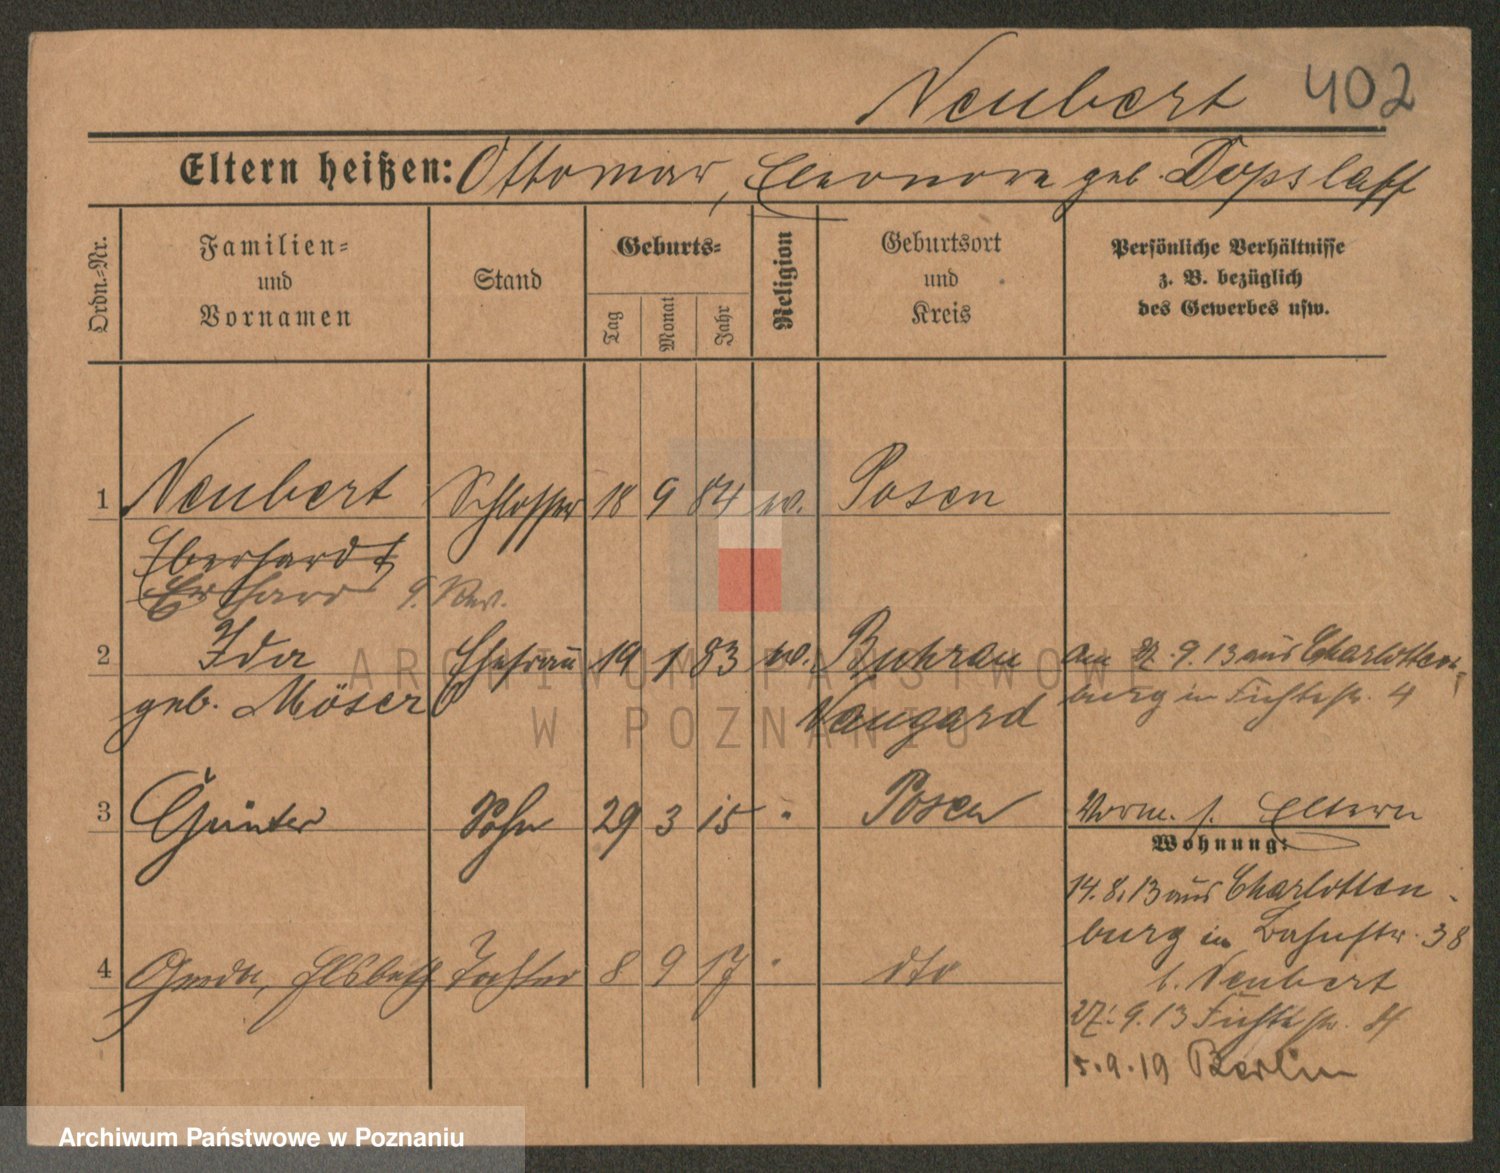 Neubert 402
Eltern heißen: Ottomar, Eleonore geb. Dopslaff
Ordn.-Nr.
Familien- und Vornamen
Stand
Geburts-
Tag Monat Jahr
Religion
Geburtsort und Kreis
Persönliche Verhältnisse z. B. bezüglich des Gewerbes usw.
1 Neubert Schlosser 18 9 84 ev. Posen
Eberhardt
Erhard
2 Ida Ehefrau 19 1 83 ev. am 27.9.13 aus Charlotten-
geb. Möser Naugard burg in Fichtestr. 4
3 Günter Sohn 29 3 15 " Posen Eltern
Wohnung:
14.8.13 aus Charlotten-
burg in Bahnstr. 38
b. Neubert
4 Gerda, Elsbeth Tochter 8 9 17 " dto
27.9.13 Fichtestr.
5.9.19 Berlin
ARCHIWUM PAŃSTWOWE
W POZNANIU
Archiwum Państwowe w Poznaniu